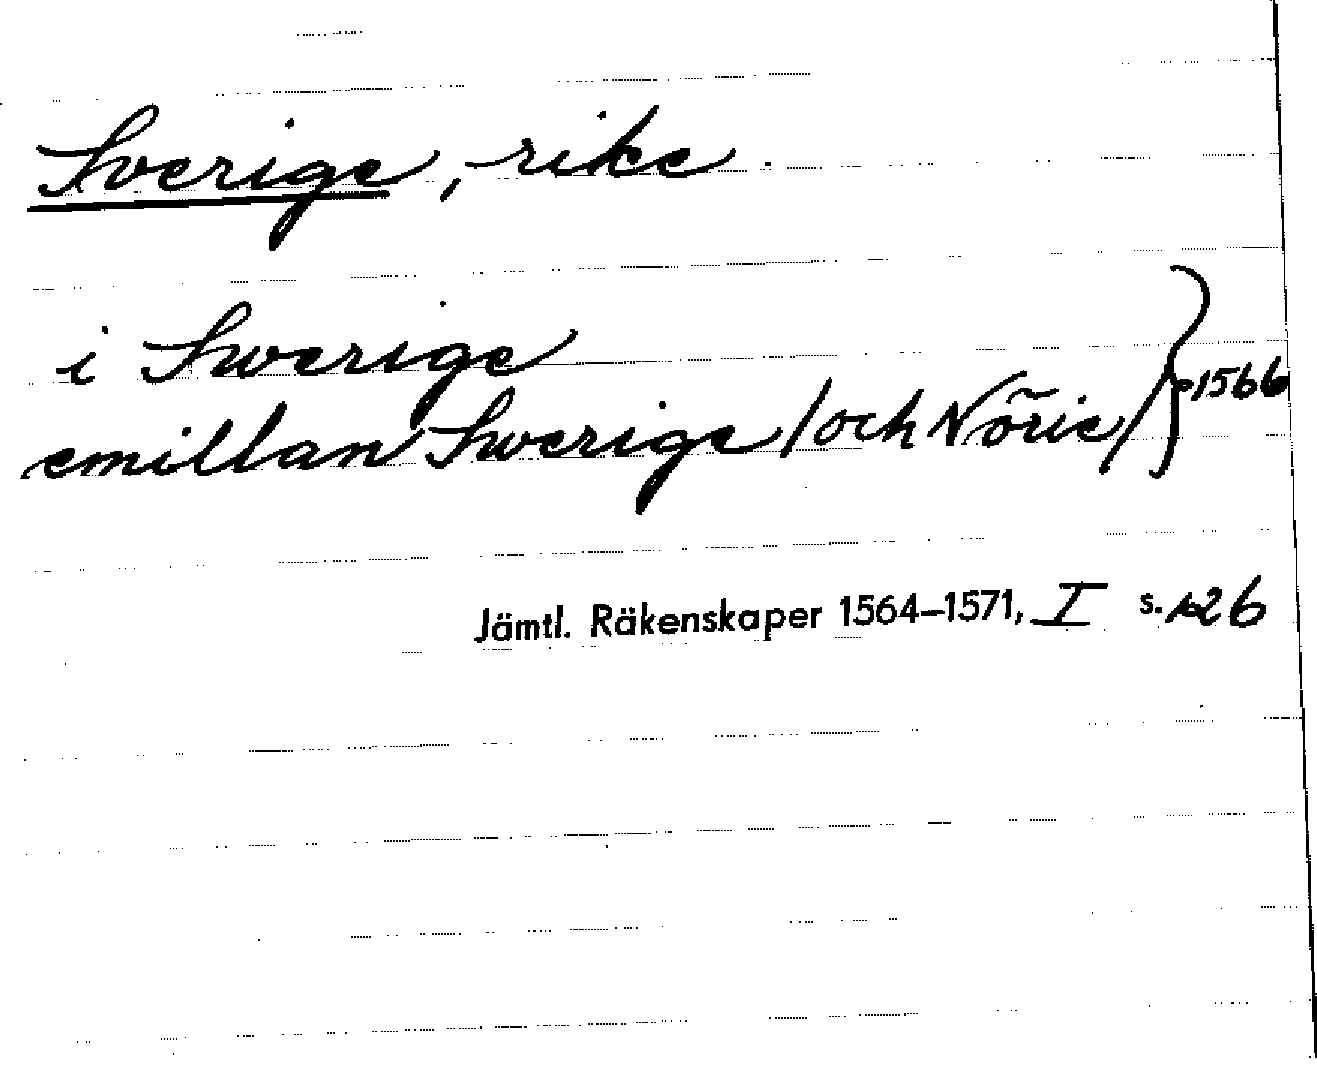 Sverige, rike
i Swerige
emillan Swerige /och Nõrie/ } 1566
Jämtl. Räkenskaper 1564–1571, I s. 126